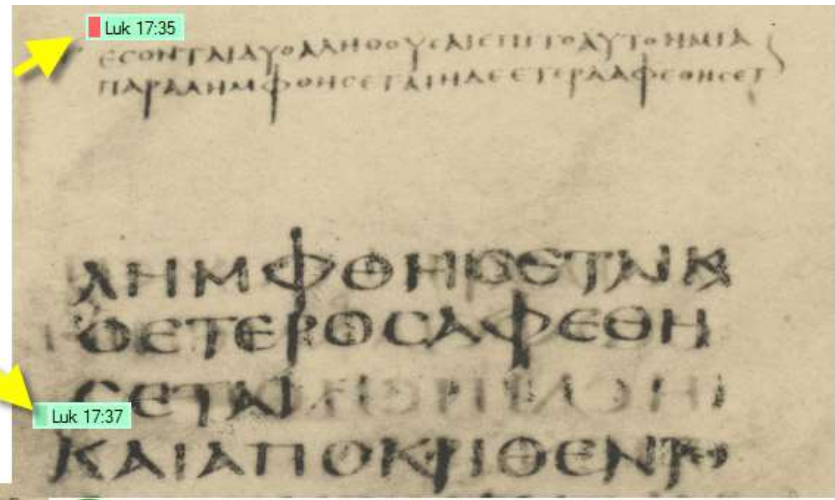 Luk 17:35
ΕϹΟΝΤΑΙΔΥΟΑΛΗΘΟΥϹΑΙΕΠΙΤΟΑΥΤΟΗΜΙΑ
ΠΑΡΑΛΗΜΦΘΗϹΕΤΑΙΗΔΕΕΤΕΡΑΑΦΕΘΗϹΕΤ
ΛΗΜΦΘΗϹΕΤΑΙΚ
ΟΕΤΕΡΟϹΑΦΕΘΗ
ϹΕΤΑΙ
Luk 17:37
ΚΑΙΑΠΟΚΡΙΘΕΝΤ